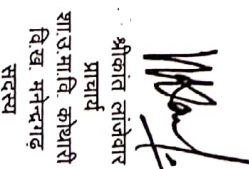 श्रीकांत लांजेवार
प्राचार्य
शा.उ.मा.वि. केल्हारी
वि.ख. मनेन्द्रगढ़
सदस्य